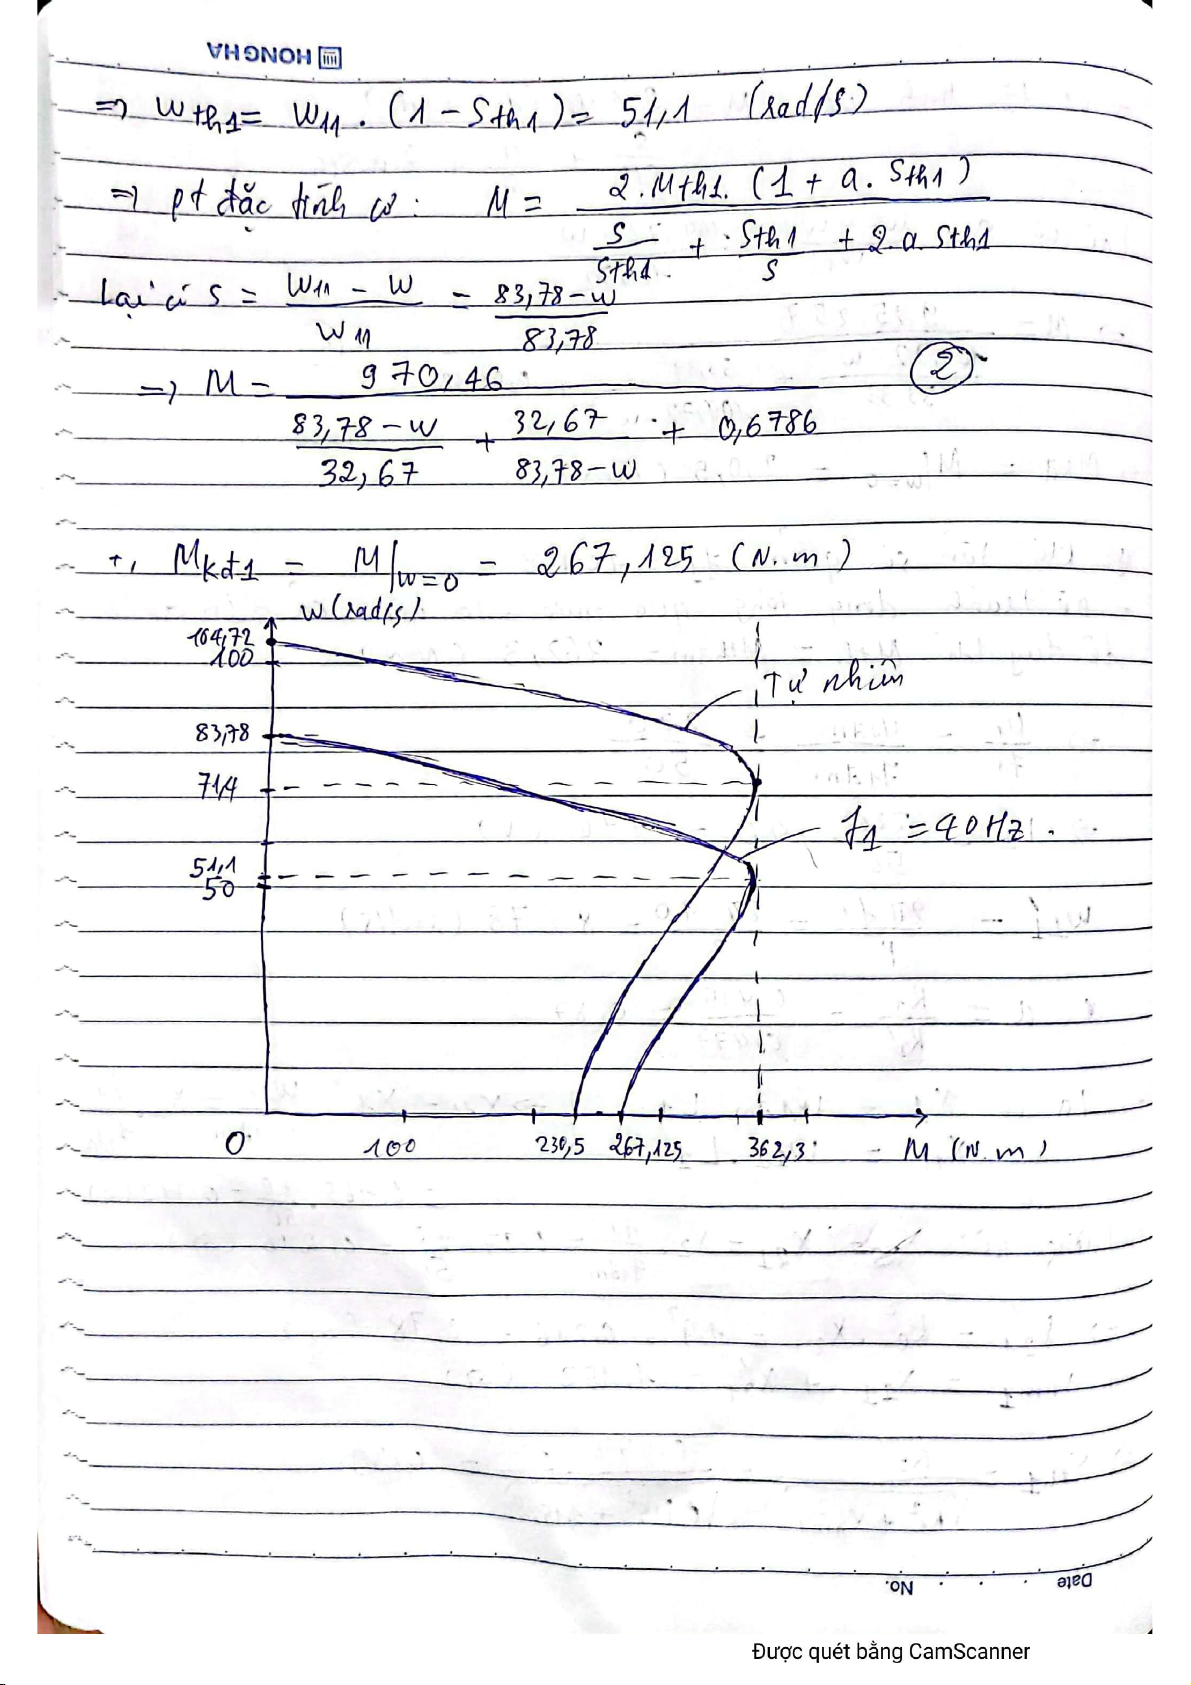 HONG HA
=> W_th1 = W_11 . (1 - S_th1) = 51,1 (rad/s)
=> pt đặc tính cơ: M = 2.M_th1.(1 + a.S_th1) / (S/S_th1 + S_th1/S + 2.a S_th1)
Lại có S = (W_11 - W) / W_11 = (83,78 - W) / 83,78
=> M = 970,46 / ((83,78 - W)/32,67 + 32,67/(83,78 - W) + 0,6786) (2)
+, M_kđ1 = M|_W=0 = 267,125 (N.m)
W(rad/s)
104,72
100
Tự nhiên
83,78
71,4
f_1 = 40Hz.
51,1
50
0 100 230,5 267,125 362,3 M (N.m)
Date
No.
Được quét bằng CamScanner